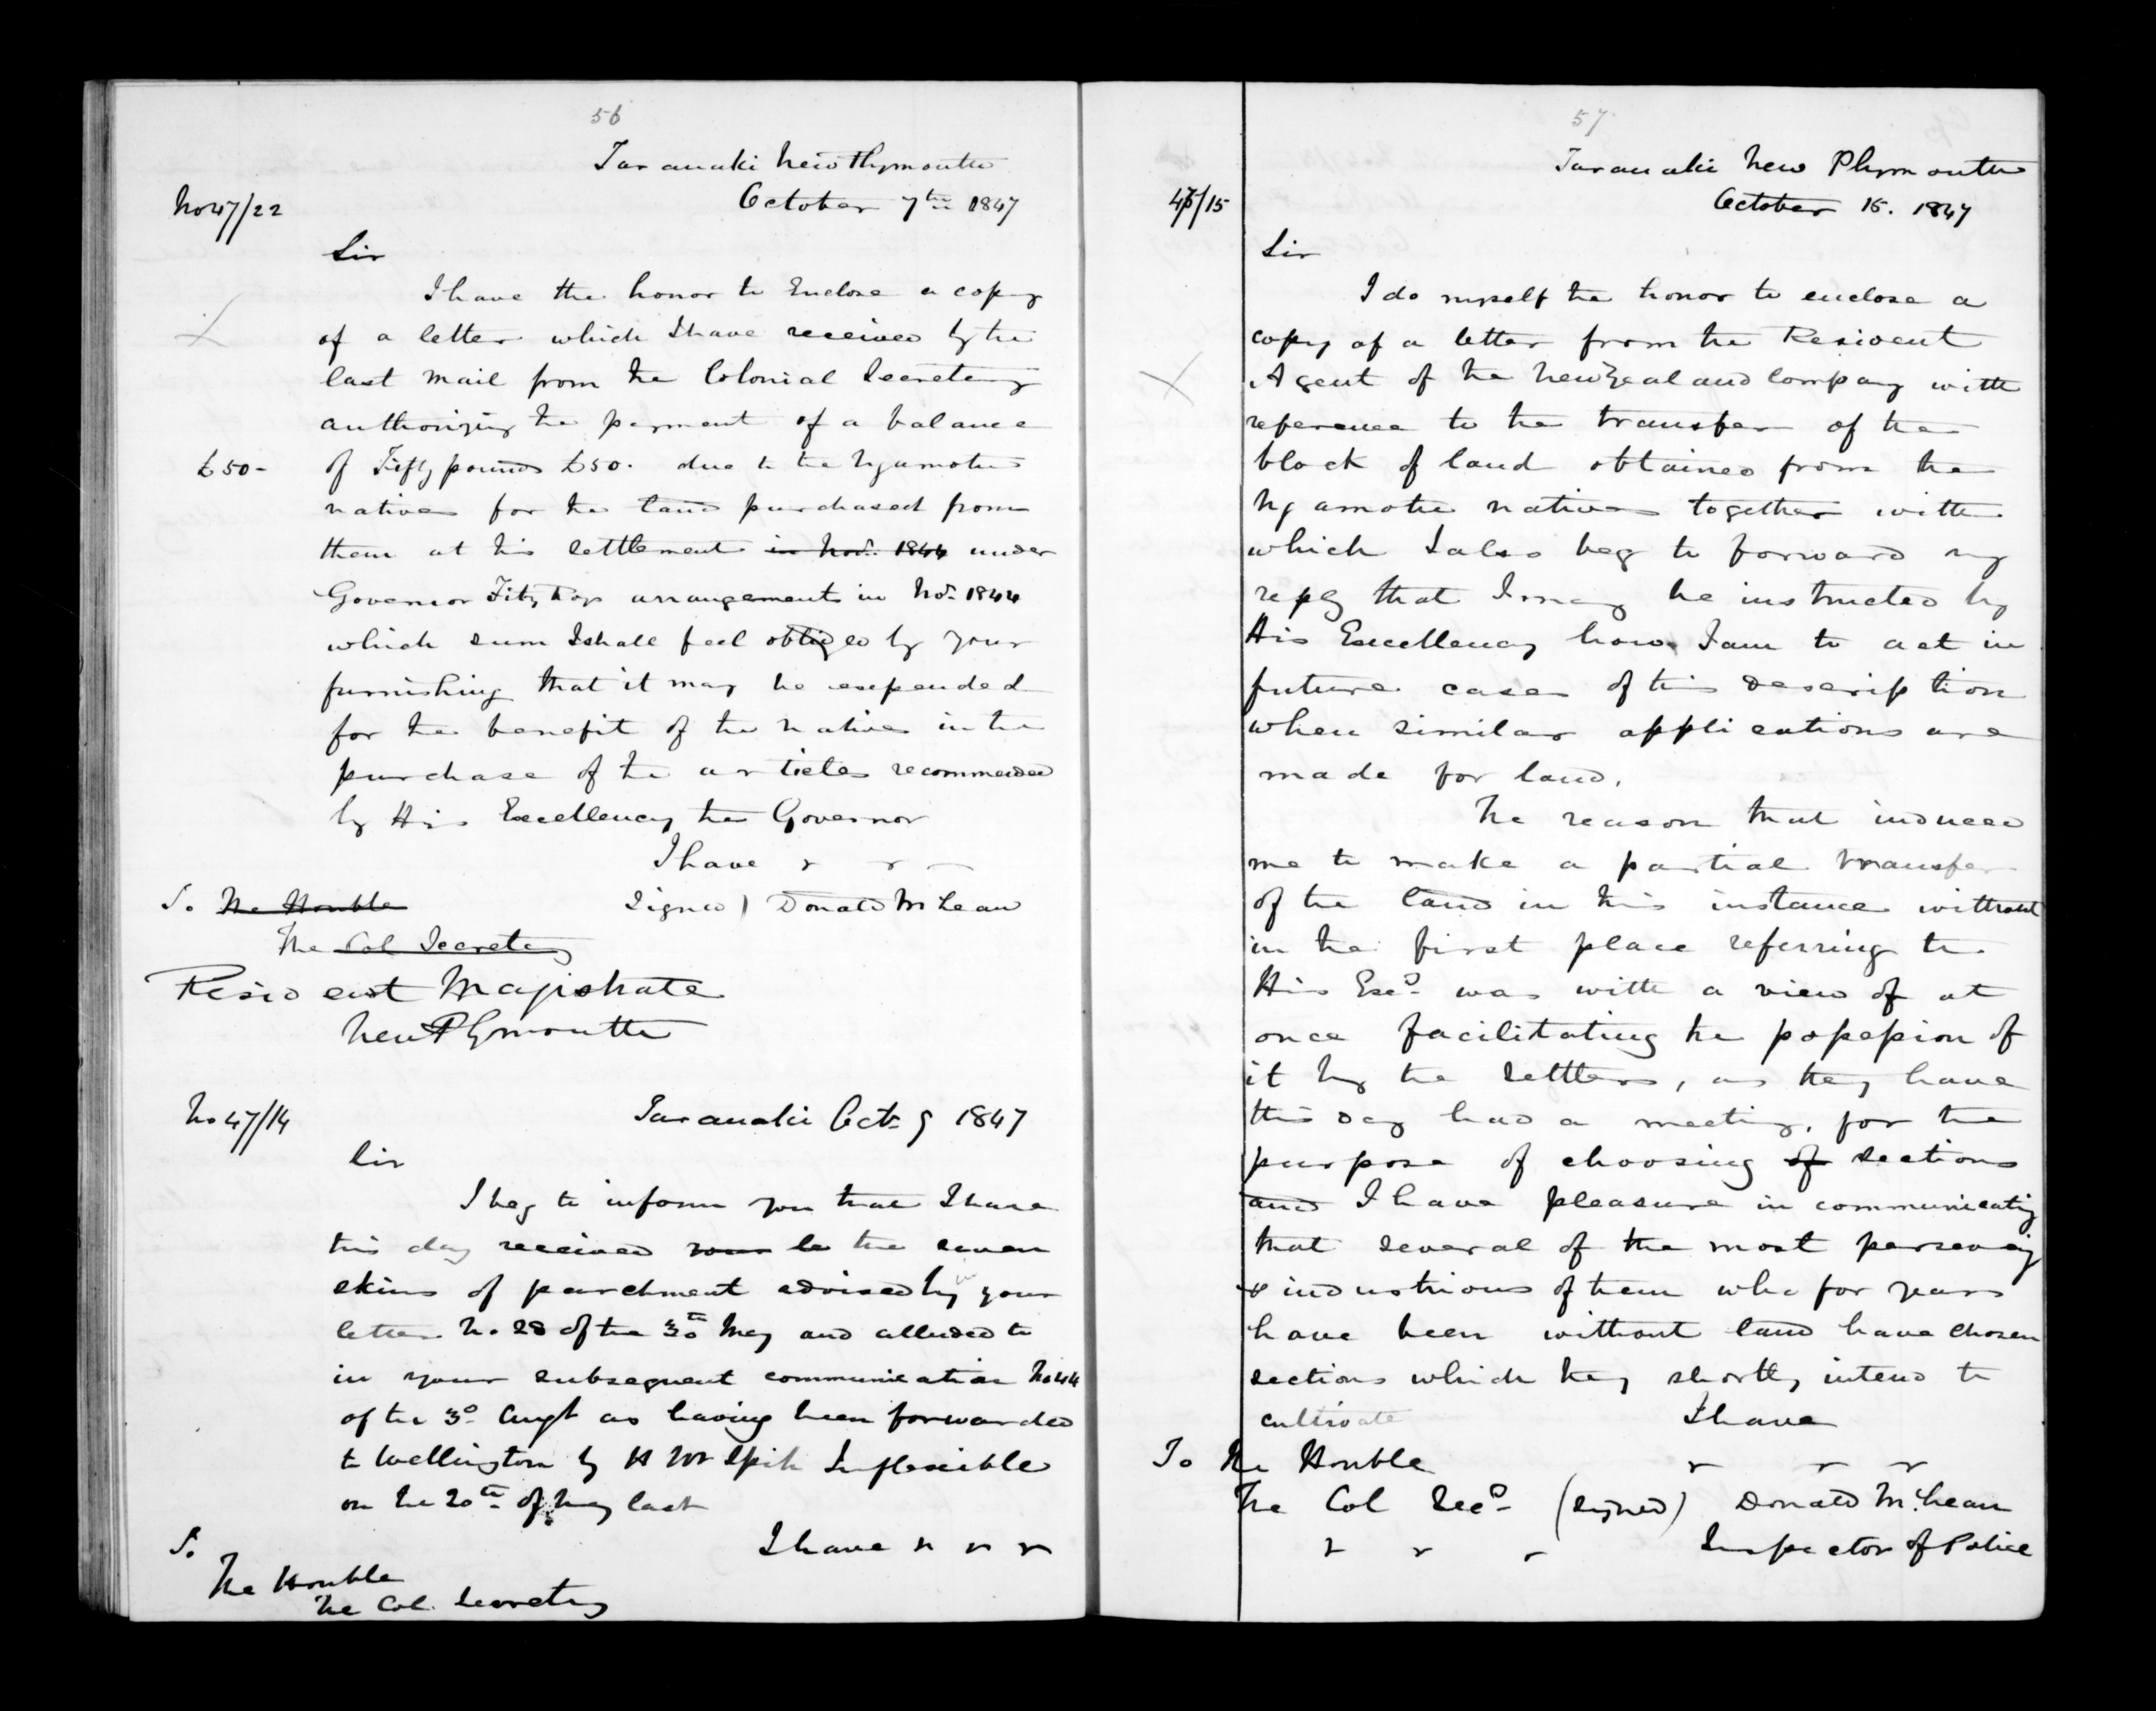 56
Taranaki New Plymouth
No 47/22 October 7th 1847
Sir
I have the honor to Enclose a copy
of a letter which I have received by the
last Mail from the Colonial Secretary
authorizing the payment of a balance
£50- of Fifty pounds £50. due to the Ngamotu
natives for the land purchased from
them at this settlement in Novr. 1844 under
Governor Fitz Roys arrangements in Novr 1844
which sum I shall feel obliged by your
furnishing that it may be expended
for the benefit of the natives in the
purchase of the articles recommended
by His Excellency the Governor
I have
To The Honble Signed) Donald McLean
The Col Secretary
Resident Magistrate
New Plymouth
No 47/14 Taranaki Octr 9 1847
Sir
I beg to inform you that I have
this day received the seven
skins of parchment advised by your
letter No 28 of the 30th May and alluded to
in your subsequent communication No 44
of the 30 Augt as having been forwarded
to Wellington by H M Ship Inflexible
on the 20th of May last
I have
To
The Honble
The Col. Secretary
57
Taranaki New Plymouth
47/15 October 15. 1847
Sir
I do myself the honor to enclose a
copy of a letter from the Resident
Agent of the New Zealand Company with
reference to the transfer of the
block of land obtained from the
Ngamotu natives together with
which I also beg to forward my
reply that I may be instructed by
His Excellency how I am to act in
future cases of this description
when similar applications are
made for land.
The reason that induced
me to make a partial transfer
of the land in this instance without
in the first place referring to
His Excy was with a view of at
once facilitating the possession of
it by the settlers, as they have
this day had a meeting, for the
purpose of choosing of sections
and I have pleasure in communicating
that several of the most persevering
& industrious of them who for years
have been without land have chosen
sections which they shortly intend to
cultivate I have
To The Honble
The Col Secy (signed) Donald McLean
Inspector of Police